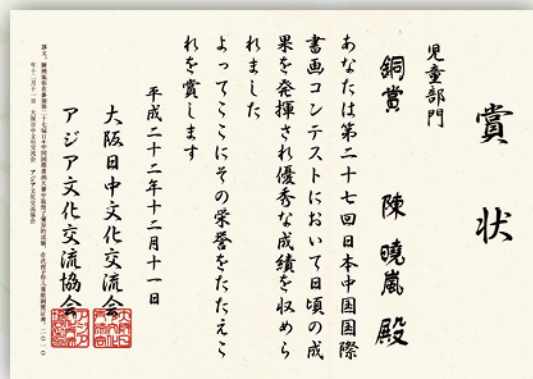 賞状
児童部門
銅賞 陳曉嵐殿
あなたは第二十七回日本中国国際
書画コンテストにおいて日頃の成
果を発揮され優秀な成績を収めら
れました
よってここにその栄誉をたたえこ
れを賞します
平成二十二年十二月十一日
大阪日中文化交流会
アジア文化交流協会